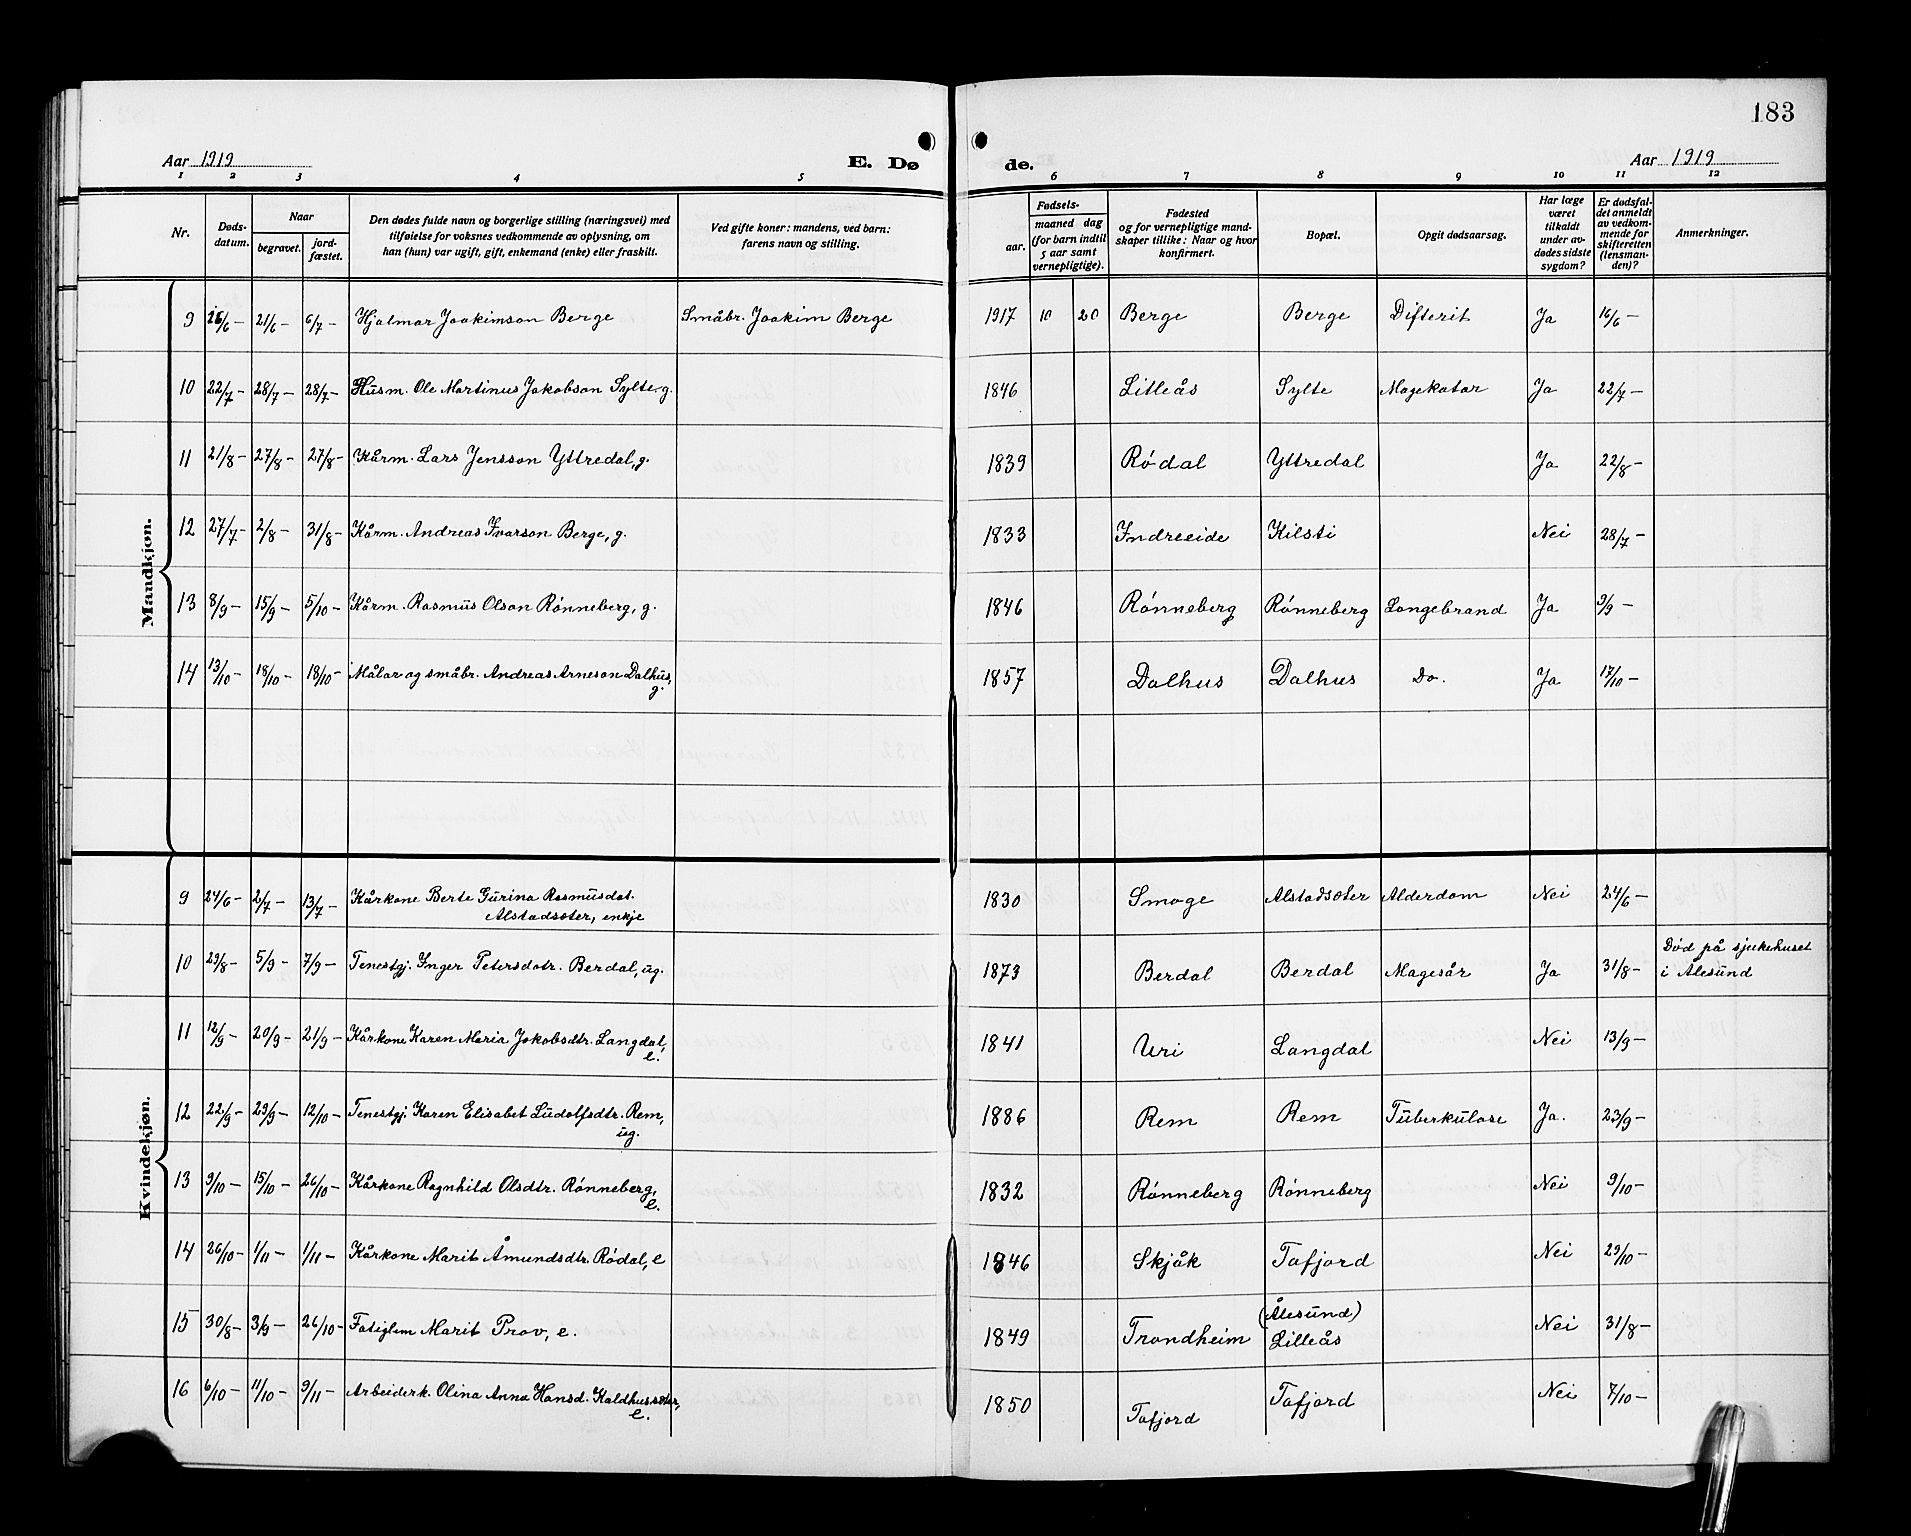 183
Aar 1919 E. Dø de. Aar 1919
1 2 3 4 5 6 7 8 9 10 11 12
Nr. Døds-datum. Naar begravet. jord-fæstet. Den dødes fulde navn og borgerlige stilling (næringsvei) med tilføielse for voksnes vedkommende av oplysning, om han (hun) var ugift, gift, enkemand (enke) eller fraskilt. Ved gifte koner: mandens, ved barn: farens navn og stilling. Fødsels- aar. maaned dag (for barn indtil 5 aar samt vernepligtige). Fødested og for vernepligtige mand-skaper tillike: Naar og hvor konfirmert. Bopæl. Opgit dødsaarsag. Har læge været tilkaldt under av-dødes sidste sygdom? Er dødsfal-det anmeldt av vedkom-mende for skifteretten (lensman-den)? Anmerkninger.
Mandkjøn.
9 21/6 – 6/7 – Hjalmar Joakimson Berge Småbr. Joakim Berge 1917 10 20 Berge Berge Difterit Ja 16/6 –
10 22/7 – 28/7 – 28/7 – Husm. Ole Martinus Jakobson Sylte, g. 1846 Lilleås Sylte Magekatar Ja 22/7 –
11 21/8 – 27/8 – 27/8 – Kårm. Lars Jensson Yttredal, g. 1839 Rødal Yttredal Ja 22/8 –
12 27/7 – 2/8 – 31/8 – Kårm. Andreas Ivarson Berge, g. 1833 Indreeide Kilsti Nei 28/7 –
13 8/9 – 15/9 – 5/10 – Kårm. Rasmus Olson Rønneberg, g. 1846 Rønneberg Rønneberg Langebrand Ja 9/9 –
14 13/10 – 18/10 – 18/10 – Målar og småbr. Andreas Arneson Dalhus, 1857 Dalhus Dalhus Do. Ja 17/10 –
g.
Kvindekjøn.
9 24/6 – 2/7 – 13/7 – Kårkone Berte Gurina Rasmusdot. 1830 Smoge Alstadsæter Alderdom Nei 24/6 –
Alstadsæter, enkje
10 29/8 – 5/9 – 7/9 – Tenestgj. Inger Petersdotr. Berdal, ug. 1873 Berdal Berdal Magesår Ja 31/8 – Død på sjukehuset
i Ålesund
11 12/9 – 20/9 – 21/9 – Kårkone Karen Maria Jakobsdtr. Langdal, 1841 Uri Langdal Nei 13/9 –
e.
12 22/9 – 29/9 – 12/10 – Tenestgj. Karen Elisabet Ludolfsdtr. Rem, 1886 Rem Rem Tuberkulose Ja. 23/9 –
ug.
13 9/10 – 15/10 – 26/10 – Kårkone Ragnhild Olsdtr. Rønneberg, 1832 Rønneberg Rønneberg Nei 9/10 –
e.
14 26/10 – 1/11 – 1/11 – Kårkone Marit Åmundsdtr. Rødal, e 1846 Skjåk Tafjord Nei 29/10 –
15 30/8 – 3/9 – 26/10 – Fatiglem Marit Prov, e. 1849 Trondheim (Ålesund) Lilleås Nei 31/8 –
16 6/10 – 11/10 – 9/11 – Arbeiderk. Olina Anna Hansd. Kaldhussæter, 1850 Tafjord Tafjord Nei 7/10 –
e.